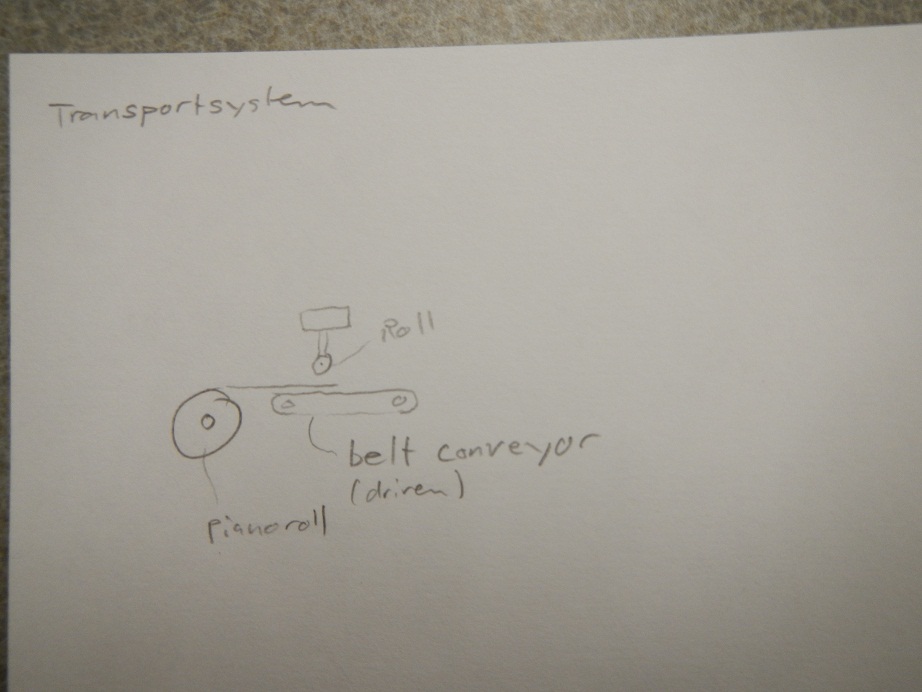 Transportsystem
Roll
belt conveyor
(driven)
Pianoroll